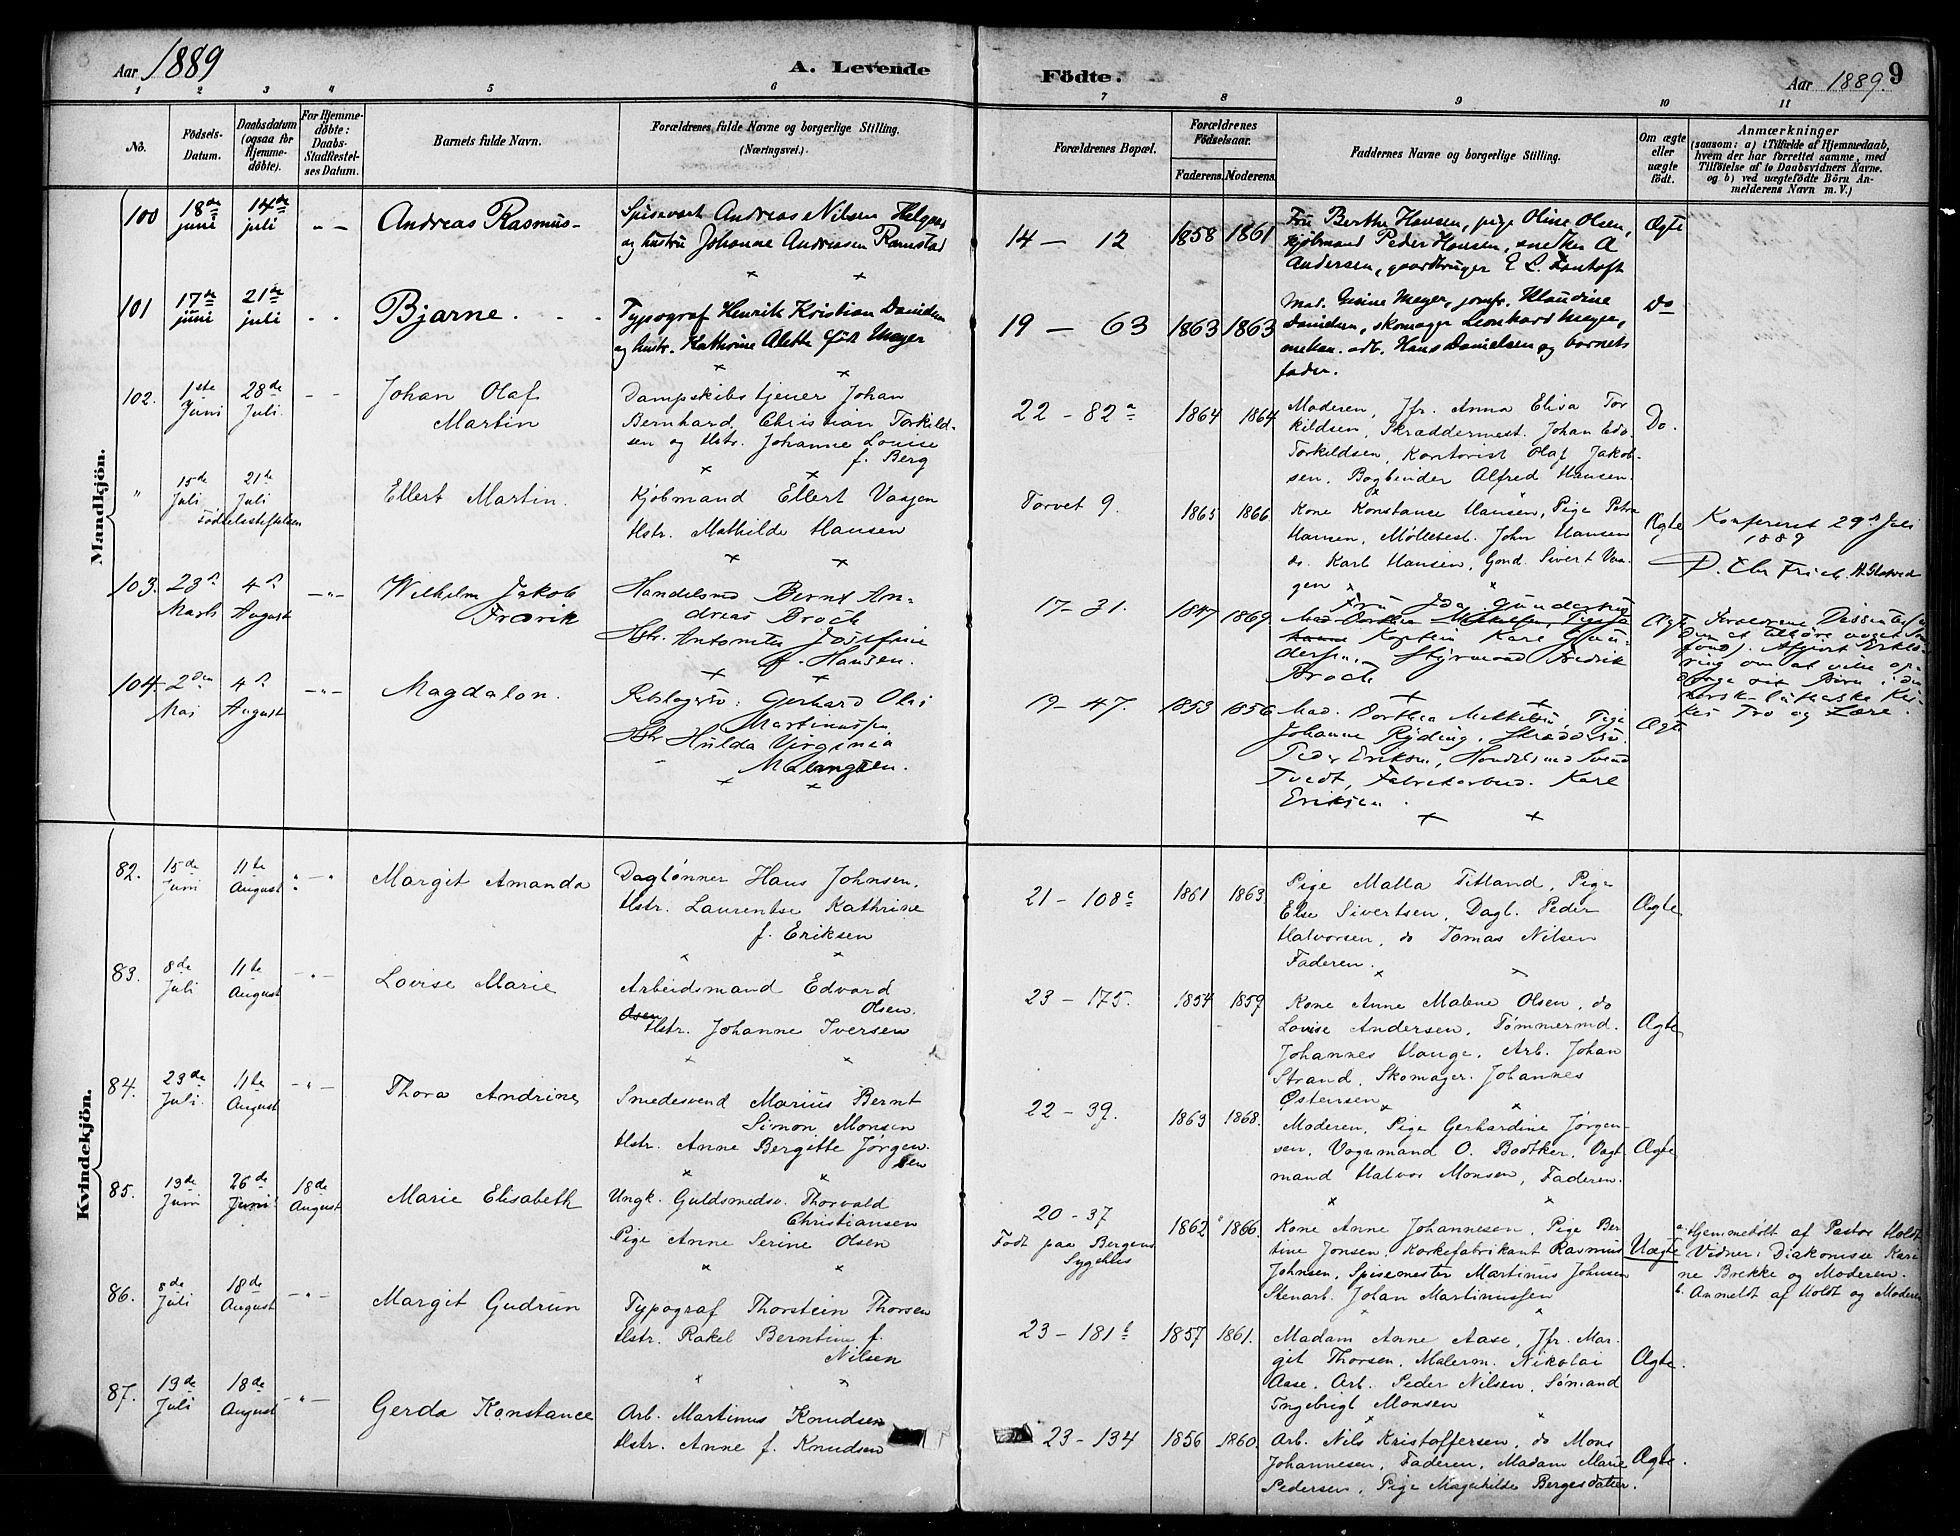 Aar 1889
A. Levende
Födte.
Aar 1889.
9
1 2 3 4 5 6 7 8 9 10 11
No.
Födsels-
Datum.
Daabsdatum
(ogsaa for
Hjemme-
döbte).
For Hjemme-
döbte:
Daabs-
Stadfæstel-
ses Datum.
Barnets fulde Navn.
Forældrenes fulde Navne og borgerlige Stilling.
(Næringsvei.)
Forældrenes Bopæl.
Forældrenes
Födselsaar.
Faderens. Moderens.
Faddernes Navne og borgerlige Stilling.
Om ægte
eller
uægte
födt.
Anmærkninger
(saasom: a) i Tilfælde af Hjemmedaab,
hvem der har forrettet samme, med
Tilföielse af to Daabsvidners Navne.
og b) ved uægtefödte Börn An-
melderens Navn m. V.)
Mandkjön.
100 18de juni 14de juli
Andreas Rasmus
Spisevært Andreas Nilsen
og hustru Johanne Andreasen Ramstad
14 — 12 1858 1861
Fru Berthe Hansen, pige Oline Olsen,
kjøbmand Peder Hansen, snekker A
Andersen, gaardbruger E L. Fantoft
Ægte
101 17de juni 21de juli
Bjarne
Typograf Henrik Kristian Danielsen
og hustr. Kathrine Alette født Meyer
19 — 63 1863 1863
Mad. Gurine Meyer, jomfr. Klaudine
Danielsen, skomager Leonhard Meyer,
Hans Danielsen og barnets
fader.
Do
102. 1ste Juni 28de Juli.
Johan Olaf
Martin
Dampskibstjener Johan
Bernhard Christian Torkild-
sen og Hstr. Johanne Louise
f. Berg
22 - 82a 1864 1864
Moderen, Jfr. Anna Elisa Tor
kildsen, Skræddermest. Johan Edv.
Torkildsen, Kontorist Olaf Jakob-
sen, Bogbinder Alfred Hansen.
Do.
" 15de Juli 21te Juli
Fødselsstiftelsen
Ellert Martin.
Kjøbmand Ellert Vaagen
Hstr. Mathilde Hansen
Torvet 9. 1865 1866
Kone Konstance Hansen, Pige Petra
Hansen, Møllebest. John Hansen
do. Karl Hansen, Gond. Sivert Vaa-
gen
Ægte
Konfereret 29de Juli
1889
D. Chr Frich
103. 23d Marts 4d August
Wilhelm Jakob
Fredrik
Handelsmd Bernt An-
dreas Broch
Hstr. Josefine
f. Hansen.
17-31. 1869
Fru Ida Gundersen
Kaptein Karl Gun-
dersen, Styrmand Fredrik
Broch
Ægte
Forældrene Dissenter
Afgivet Erklæ-
ring om at ville op-
drage sit Barn i den
norsk-lutherske Kir-
kes Tro og Lære.
104. 2den Mai 4d August
Magdalon.
Rebslagersv: Gerhard Olai
Martinussen
Hstr Hulda Virginia
19 - 47. 1853 1856
Mad. Dorthea Mikkelsen, Pige
Johanne Ryding,
Peder Eriksen, Handelsmd Svend
Tvedt, Fabrikarbeid. Karl
Eriksen.
Ægte
Kvindekjön.
82. 15de Juni 11te August
Margit Amanda
Dagtønner Hans Johnsen.
Hstr. Laurentse Kathrine
f. Eriksen
21 - 108c 1861 1863
Pige Malla Titland, Pige
Else Sivertsen, Dagl. Peder
Halvorsen, do Tomas Nilsen
Faderen.
Ægte
83. 8de Juli 11te August
Lovise Marie
Arbeidsmand Edvard
Olsen.
Hstr. Johanne Iversen
23 - 175. 1854 1859
Kone Anne Malene Olsen, do
Lovise Andersen, Tømmermd.
Johannes Hauge, Arb. Johan
Strand, Skomager. Johannes
Østensen
Ægte
84. 23de Juli. 11te August
Thora Andrine
Smedesvend Marius Bernt
Simon Monsen
Hstr. Anne Bergitte Jørgen-
sen
22 - 39. 1863 1868.
Moderen, Pige Gerhardine Jørgen-
sen, Vognmand O. Bødtker, Vogt
mand Halvor Monsen, Faderen.
Ægte
85. 19de Juni 26de Juni 18de August
Marie Elisabeth
Ungk. Guldsmedsv. Thorvald
Christiansen
Pige Anne Serine Olsen
20 - 37
Født paa Bergens
Sygehus
1862 1866
Kone Anne Johannesen, Pige Ber-
tine Jonsen, Korkefabrikant Rasmus
Johnsen, Spisemester Martinus Johnsen
Stenarb. Johan Martinussen
Uægte
a. Hjemmedøbt af Pastor Holdt
Vidner: Diakonisse Kari
ne Brekke og Moderen.
b. Anmeldt af Holdt og Moderen
86. 8de Juli 18de August
Margit Gudrun
Typograf Thorstein Thorsen
Hstr. Rakel Berntine f.
Nilsen
23 - 181b 1857 1861.
Madam Anne Aase, Jfr. Mar-
git Thorsen, Malerm. Nikolai
Aase, Arb. Peder Nilsen, Sømand
Ingebrigt Monsen
Ægte.
87. 19de Juli 18de August
Gerda Konstance
Arb. Martinus Knudsen
Hstr. Anne f. Knudsen
23 - 134 1856 1860.
Arb. Nils Kristoffersen, do Mons
Johannesen, Faderen, Madam Marie
Pedersen, Pige Magnhilde Bergesdatter.
Ægte.